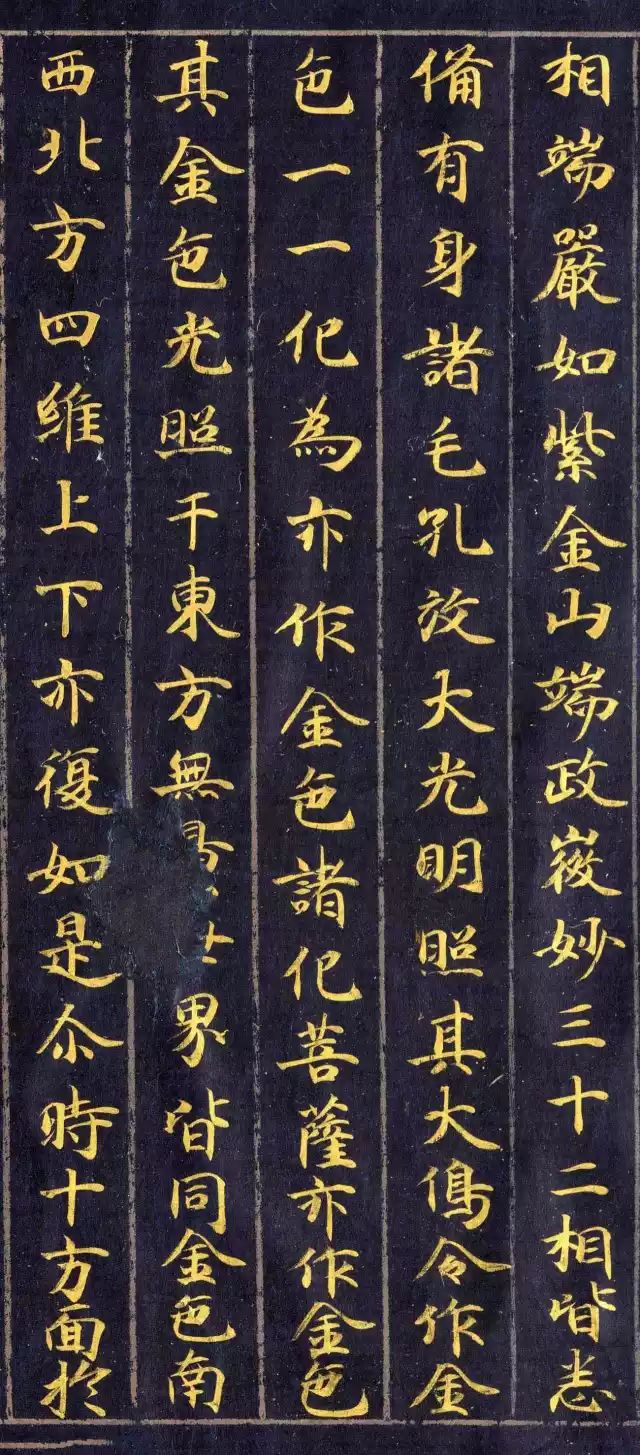 相端嚴如紫金山端政微妙三十二相皆悉
備有身諸毛孔放大光明照其大令作金
色一一化為亦作金色諸化菩薩亦作金色
其金色光照于東方無界皆同金色南
西北方四維上下亦復如是尒時十方面於